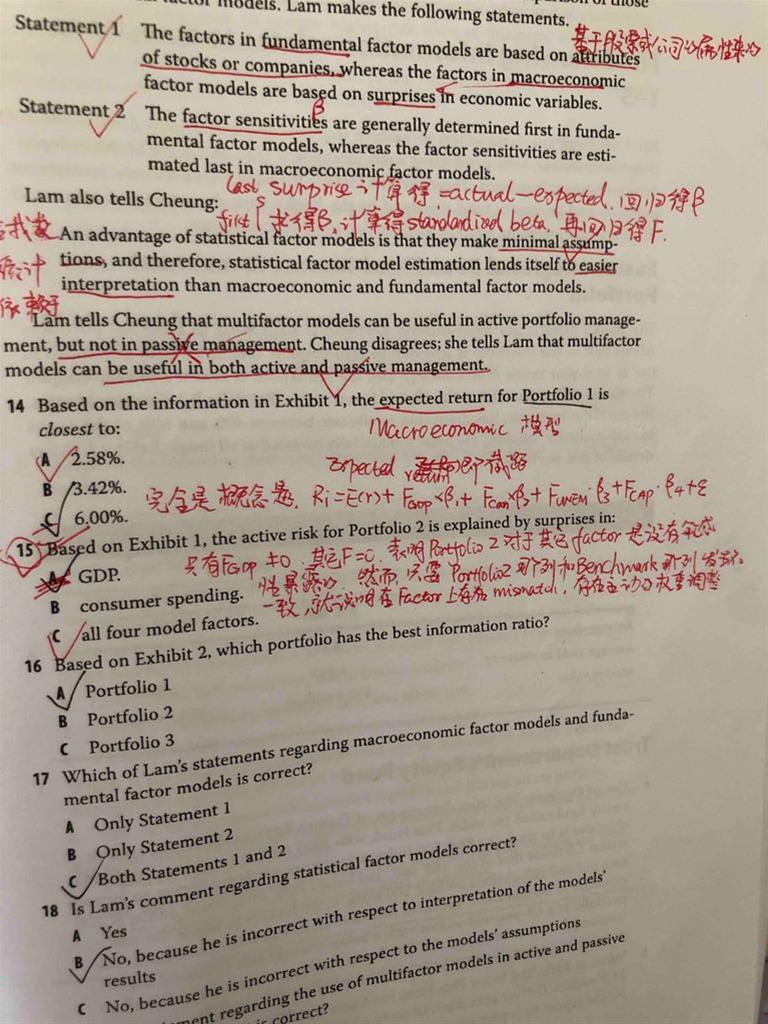 models. Lam makes the following statements.
Statement 1 The factors in fundamental factor models are based on attributes
基于股票或公司的属性来的
of stocks or companies, whereas the factors in macroeconomic
factor models are based on surprises in economic variables.
β
Statement 2 The factor sensitivities are generally determined first in funda-
mental factor models, whereas the factor sensitivities are esti-
mated last in macroeconomic factor models.
last surprise 计算得 =actual-expected. 回归得β
Lam also tells Cheung:
first 求得β, 计算得standardized beta, 再回归得F.
An advantage of statistical factor models is that they make minimal assump-
tions, and therefore, statistical factor model estimation lends itself to easier
interpretation than macroeconomic and fundamental factor models.
Lam tells Cheung that multifactor models can be useful in active portfolio manage-
ment, but not in passive management. Cheung disagrees; she tells Lam that multifactor
models can be useful in both active and passive management.
14 Based on the information in Exhibit 1, the expected return for Portfolio 1 is
closest to:
Macroeconomic 模型
A 2.58%.
Expected return 即截距
B 3.42%.
完全是概念题, Ri=E(r)+ FGDP×β1+ Fcon×β2+ FUNEM·β3+FCAP·β4+ε
C 6.00%.
15 Based on Exhibit 1, the active risk for Portfolio 2 is explained by surprises in:
只有FGDP≠0, 其它F=0, 表明Portfolio 2 对于其它factor 是没有敏感
A GDP.
性暴露的. 然而, 只要Portfolio2 和Benchmark
B consumer spending.
一致, 就说明在Factor上存在mismatch, 存在主动的权重调整
C all four model factors.
16 Based on Exhibit 2, which portfolio has the best information ratio?
A Portfolio 1
B Portfolio 2
C Portfolio 3
17 Which of Lam's statements regarding macroeconomic factor models and funda-
mental factor models is correct?
A Only Statement 1
B Only Statement 2
C Both Statements 1 and 2
18 Is Lam's comment regarding statistical factor models correct?
A Yes
B No, because he is incorrect with respect to interpretation of the models'
results
C No, because he is incorrect with respect to the models' assumptions
regarding the use of multifactor models in active and passive
correct?